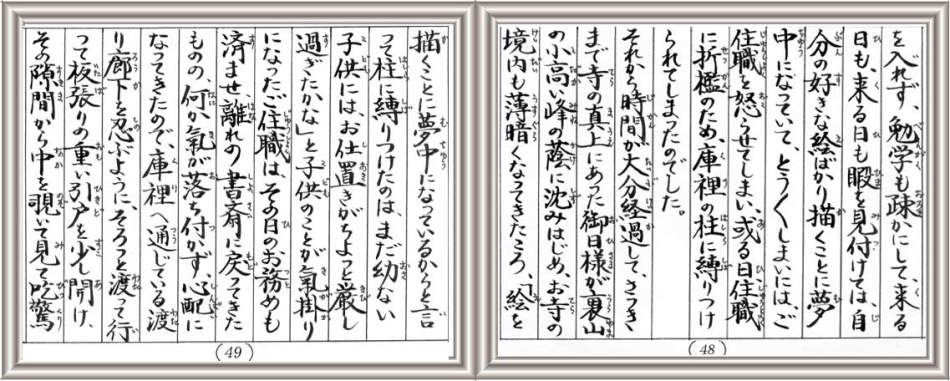 を入れず、勉学も疎かにして、来る
日も、来る日も暇を見付けては、自
分の好きな絵ばかり描くことに夢
中になっていて、とう〱しまいには、ご
住職を怒らせてしまい、或る日、住職
に折檻のため、庫裡の柱に縛りつけ
られてしまったのでした。
それから時間が大分経過して、さっき
まで寺の真上にあった御日様が裏山
の小高い峰の蔭に沈みはじめ、お寺の
境内も薄暗くなってきたころ、「絵を
(48)
描くことに夢中になっているからと言
って柱に縛りつけたのは、まだ幼ない
子供には、お仕置きがちょっと厳し
過ぎたかな」と子供のことが氣掛り
になったご住職は、その日のお務めも
済ませ、離れの書斎に戻ってきた
ものの、何か氣が落ち付かず、心配に
なってきたので、庫裡へ通じている渡
り廊下を忍ぶように、そろっと渡って行
って板張りの重い引戸を少し開け、
その隙間から中を覗いて見て吃驚
(49)